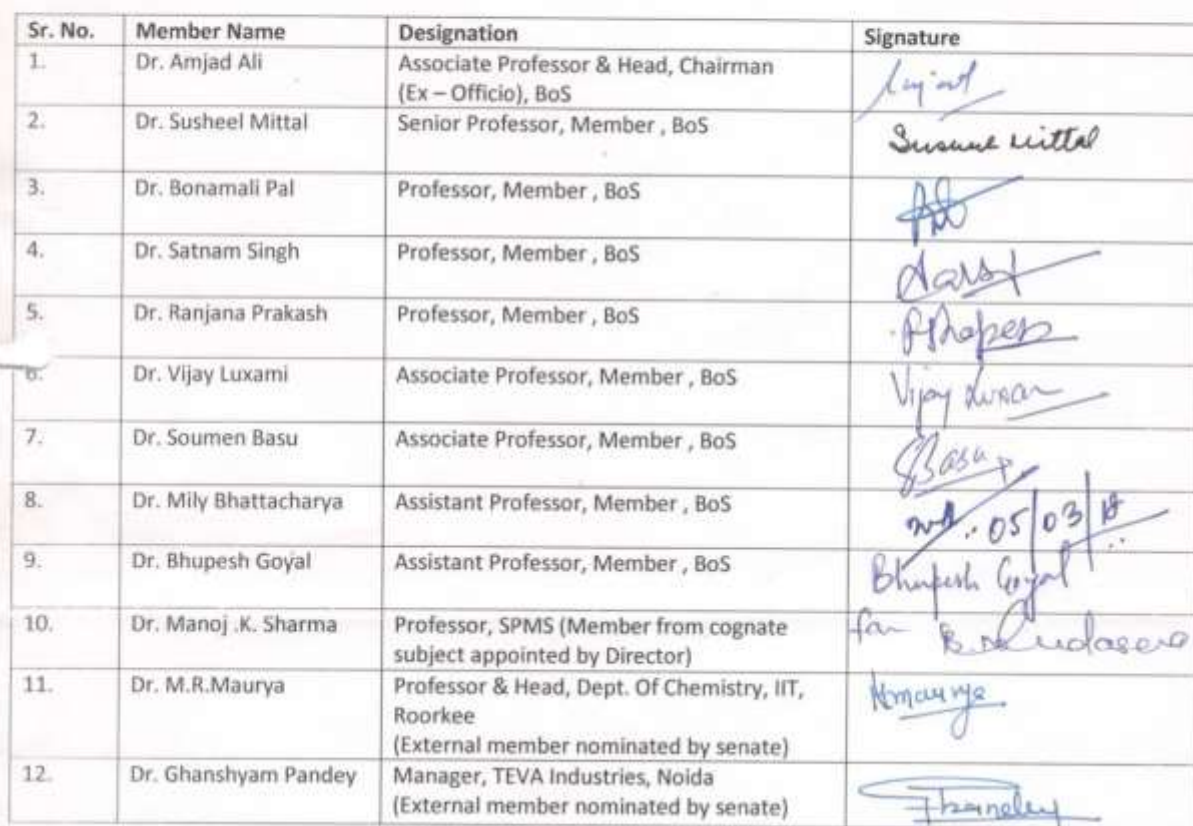 Sr. No. Member Name Designation Signature
1. Dr. Amjad Ali Associate Professor & Head, Chairman
(Ex – Officio), BoS
2. Dr. Susheel Mittal Senior Professor, Member , BoS
3. Dr. Bonamali Pal Professor, Member , BoS
4. Dr. Satnam Singh Professor, Member , BoS
5. Dr. Ranjana Prakash Professor, Member , BoS
6. Dr. Vijay Luxami Associate Professor, Member , BoS Vijay
7. Dr. Soumen Basu Associate Professor, Member , BoS SBasu
8. Dr. Mily Bhattacharya Assistant Professor, Member , BoS 05/03/18
9. Dr. Bhupesh Goyal Assistant Professor, Member , BoS Bhupesh Goyal
10. Dr. Manoj .K. Sharma Professor, SPMS (Member from cognate for
subject appointed by Director)
11. Dr. M.R.Maurya Professor & Head, Dept. Of Chemistry, IIT,
Roorkee
(External member nominated by senate)
12. Dr. Ghanshyam Pandey Manager, TEVA Industries, Noida
(External member nominated by senate)